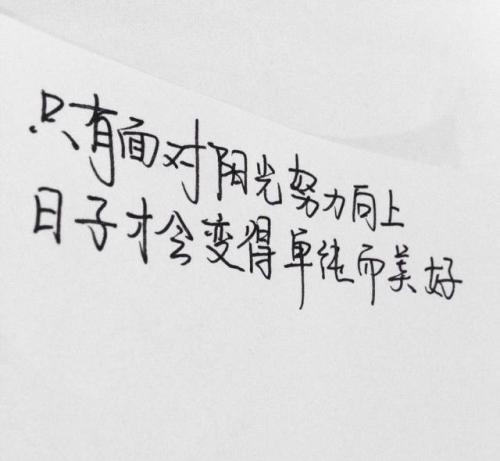 只有面对阳光努力向上
日子才会变得单纯而美好